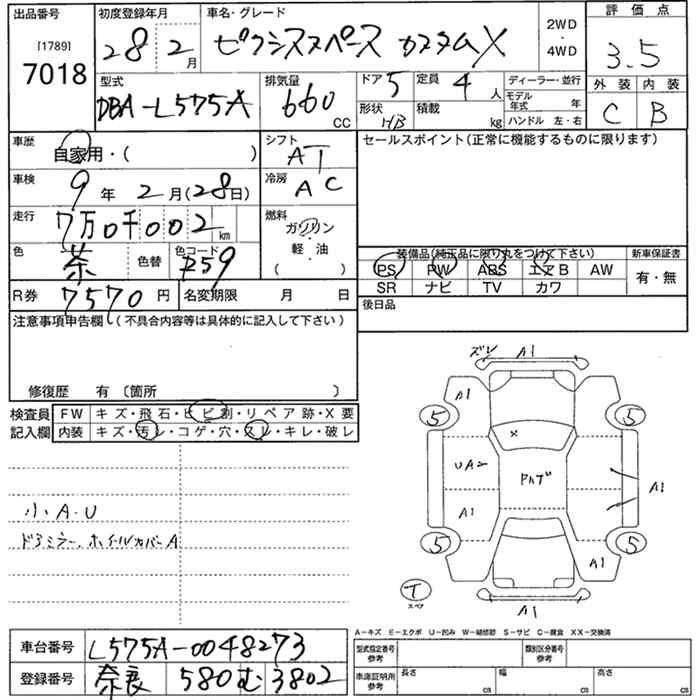 出品番号
[1789]
7018
初度登録年月
28年2月
車名・グレード
ピクシススペース カスタムX
2WD
・
4WD
評価点
3.5
型式
DBA-L575A
排気量
660 CC
ドア 5
定員 4人
形状 HB
積載 kg
ディーラー・並行
モデル年式 年
ハンドル 左・右
外装 内装
C B
車歴
自家用・( )
シフト
AT
セールスポイント(正常に機能するものに限ります)
車検
9年2月(28日)
冷房
AC
走行
7万0千002km
燃料
ガソリン
軽・油
( )
色
茶
色替
色コード
P59
装備品(純正品に限り丸をつけて下さい)
新車保証書
PS PW ABS エアB AW
SR ナビ TV カワ
有・無
R券 7570円
名変期限 月 日
後日品
注意事項申告欄(不具合内容等は具体的に記入して下さい)
修復歴 有〔箇所 〕
検査員記入欄
FW キズ・飛石・ヒビ割・リペア跡・X要
内装 キズ・汚レ・コゲ・穴・スレ・キレ・破レ
小A・U
ドアミラー、ホイールカバーA
ズレ A1
A1
5 5
×
UA2
A1
A1
5 5
A1
T
スペア
A1
A-キズ E-エクボ U-凹み W-補修跡 S-サビ C-腐食 XX-交換済
車台番号 L575A-0048273
型式指定番号
参考
類別区分番号
参考
登録番号 奈良 580 む 3802
車庫証明用
参考
長さ cm 幅 cm 高さ cm